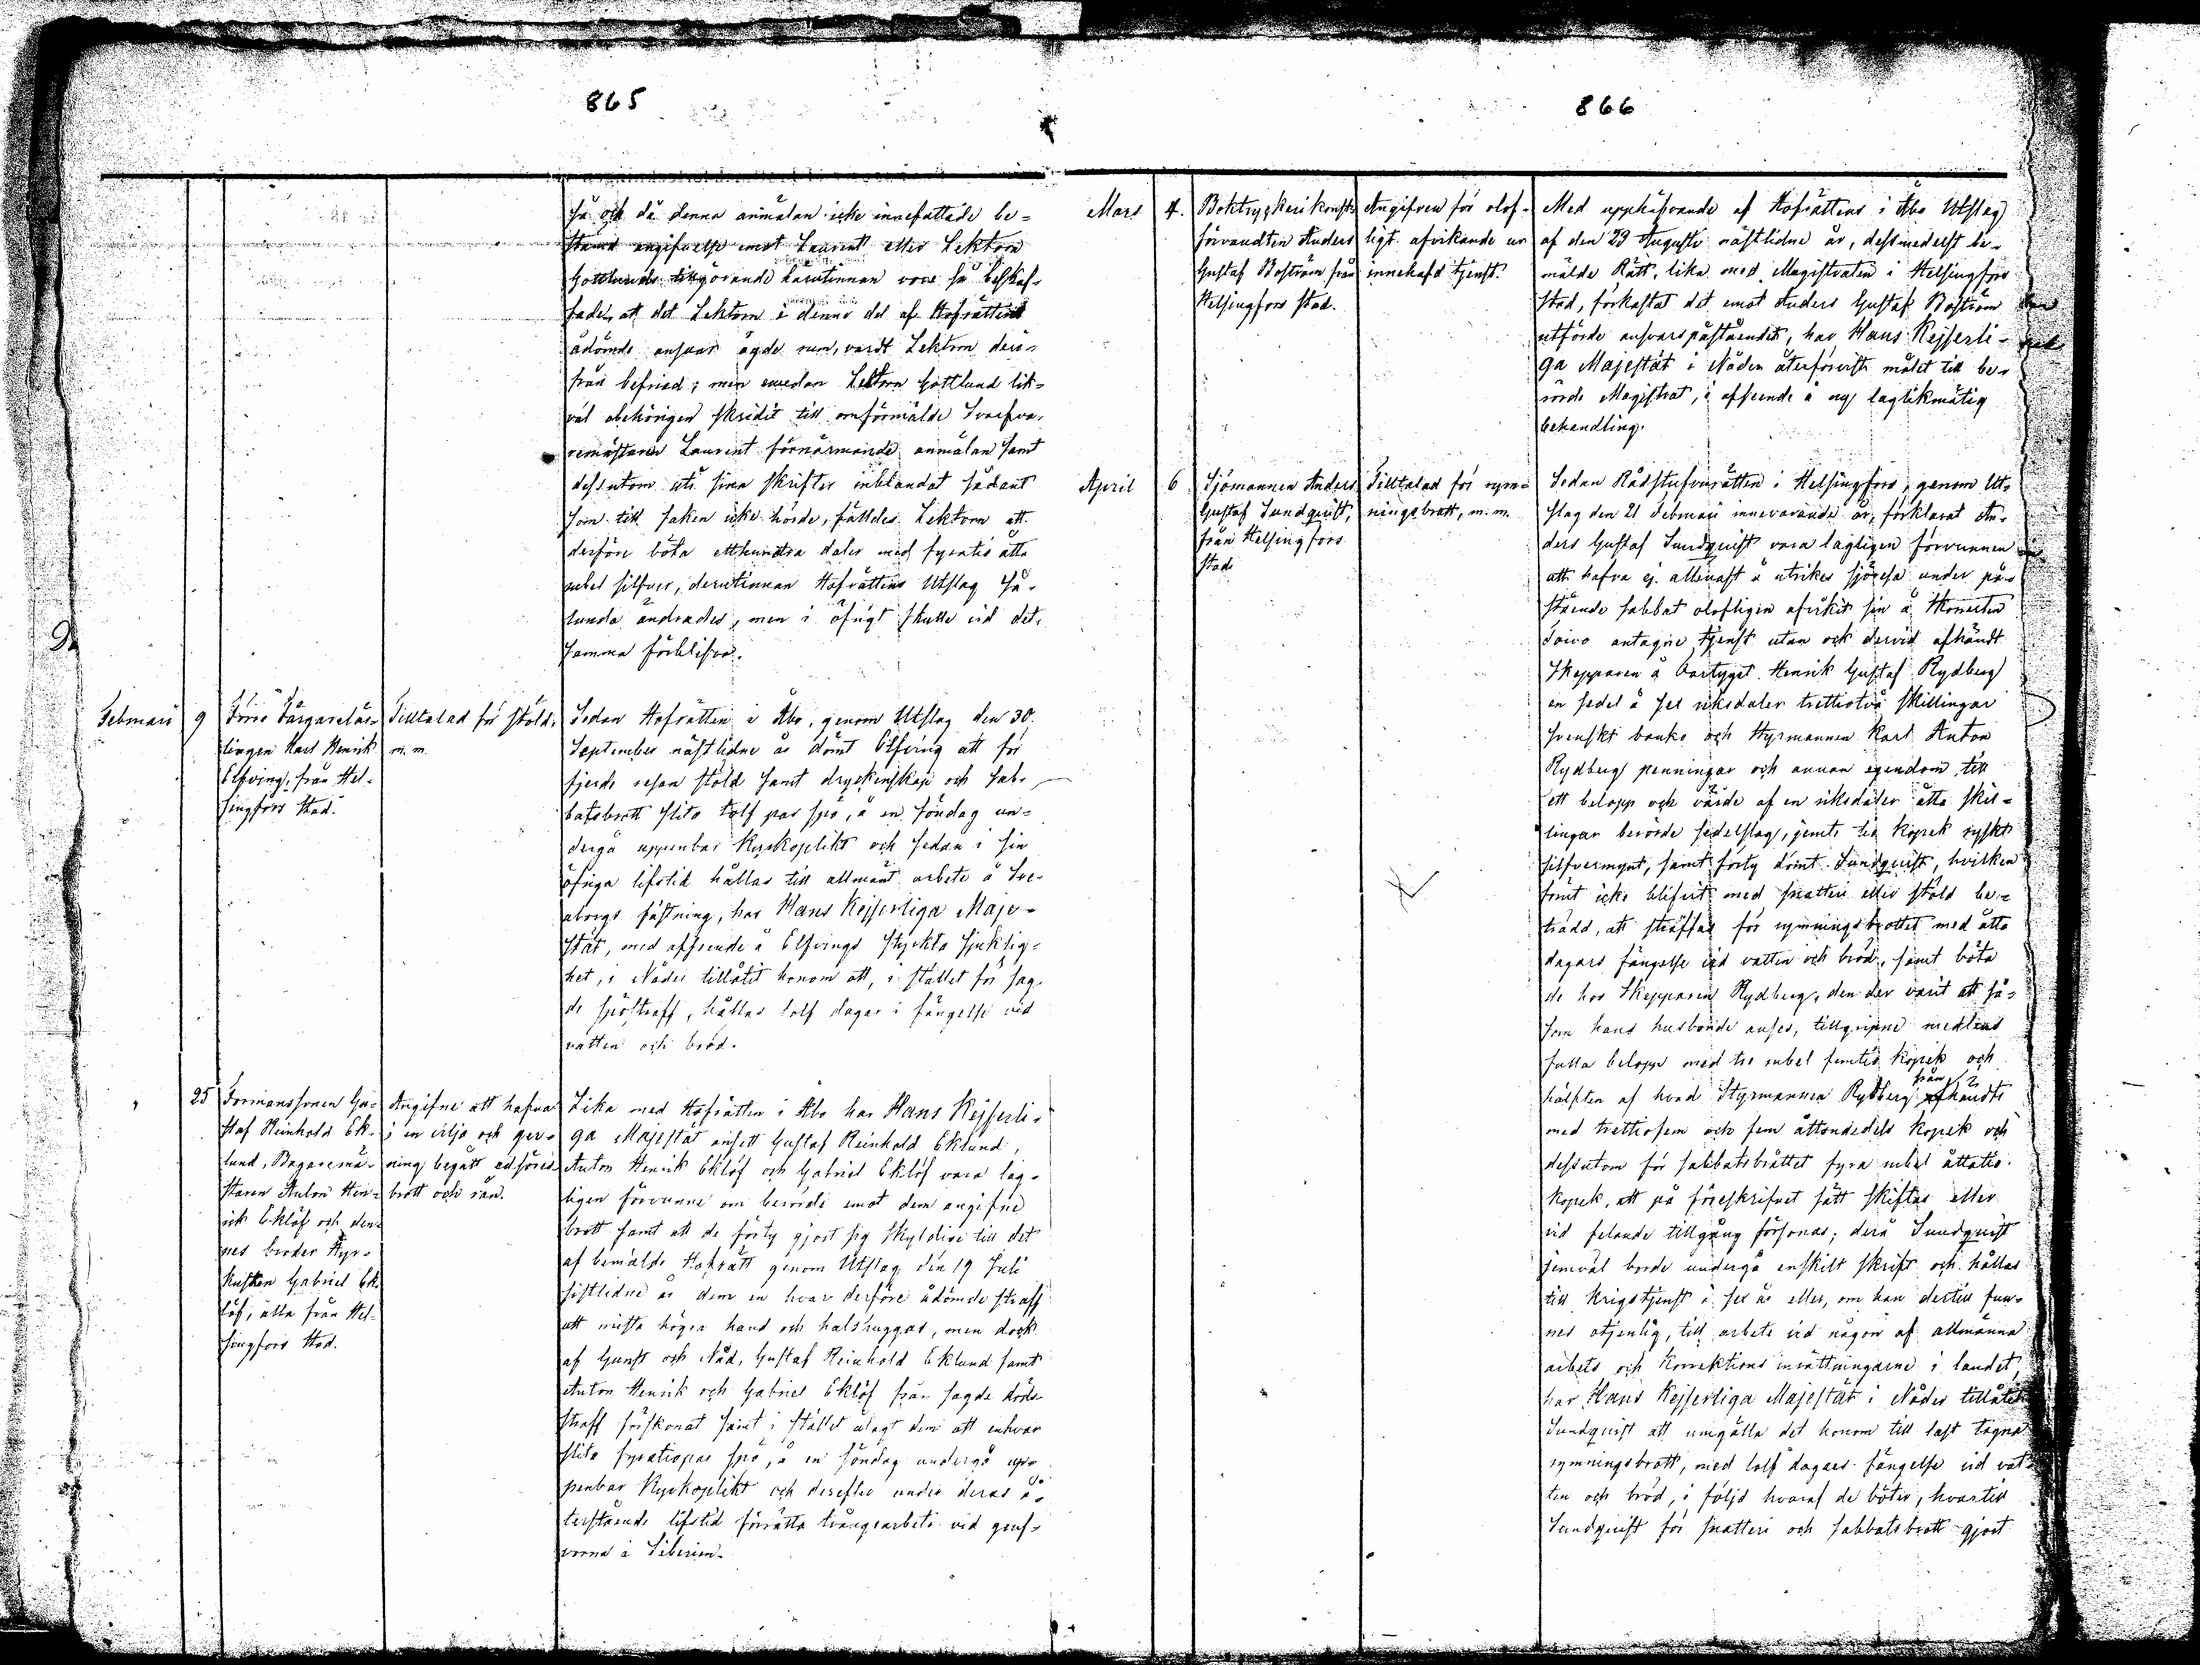 865
så och då denna anmälan icke innefattade be=
stämd angifvelse emot Laurent eller Lektorn
Gottlunds tillgörande härutinnan vore så beskaf-
fadt, at det Lektorn i denna del af Hofrätten
ådömde ansvar ägde rum, vardt Lektorn deri-
från befriad; men emedan Lektorn Gottlund lik-
väl obehörigen skridit till omförmälde Svarfva-
remästaren Laurent förnärmande anmälan samt
dessutom uti sina skrifter inblandat sådant
som till saken icke hörde, fälldes Lektorn att
derföre böta etthundra daler med fyratio åtta
rubel silfver, derutinnan Hofrättens Utslag så-
lunda ändrades, men i öfrigt skulle vid det-
samma förblifva.
Februari 9
Förre Färgarelär-
lingen Karl Henrik
Elfving, från Hel-
singfors Stad.
Tilltalad för stöld
m. m.
Sedan Hofrätten i Åbo, genom Utslag den 30.
September nästlidne år dömt Elfving att för
fjerde resan stöld samt dryckenskap och sab-
batsbrott slita tolf par spö, å en söndag un-
dergå uppenbar Kyrkoplikt och sedan i sin
öfriga lifstid hållas till allmänt arbete å Sve-
aborgs fästning, har Hans Kejserliga Maje-
stät, med afseende å Elfvings styrkta sjuklig-
het, i Nåder tillåtit honom att, i stället för sag-
de spöstraff, hållas tolf dagar i fängelse vid
vatten och bröd.
" 25
Formanssonen Gu-
staf Reinhold Ek-
lund, Bagaremä-
staren Anton Hen-
rik Eklöf och den-
nes broder Hyr-
kusken Gabriel Ek-
löf, alla från Hel-
singfors Stad.
Angifne att hafva
i en vilja och ger-
ning begått edsöres
brott och rån.
Lika med Hofrätten i Åbo har Hans Kejserli-
ga Majestät ansett Gustaf Reinhold Eklund,
Anton Henrik Eklöf och Gabriel Eklöf vara lag-
ligen förvunne om berörde emot dem angifne
brott samt att de förty gjort sig skyldige till det
af bemälde Hofrätt genom Utslag den 19 Juli
sistlidne år dem en hvar derföre ådömde straff
att mista högra hand och halshuggas, men dock
af Gunst och Nåd, Gustaf Reinhold Eklund samt
Anton Henrik och Gabriel Eklöf från sagde döds-
straff förskonat samt i stället ålagt dem att enhvar
slita fyratiopar spö, å en söndag undergå up-
penbar Kyrkoplikt och derefter under deras å-
terstående lifstid förrätta tvångsarbete vid gruf-
vorna i Siberien.
866
Mars 4.
Boktryckerikonst-
förvandten Anders
Gustaf Boström från
Helsingfors stad.
Angifven för olof-
ligt afvikande ur
innehafd tjenst.
Med upphäfvande af Hofrättens i Åbo Utslag
af den 29 Augusti nästlidne år, dessmedelst be-
mälde Rätt, lika med Magistraten i Helsingfors
stad, förkastat det emot Anders Gustaf Boström
utförde ansvarspåståendet, har Hans Kejserli-
ga Majestät i Nåder återförvist målet till be-
rörde Magistrat, i afseende å ny laglikmätig
behandling.
April 6
Sjömannen Anders
Gustaf Sundquist,
från Helsingfors
stad
Tilltalad för rym-
ningsbrott, m. m.
Sedan Rådstufvurätten i Helsingfors, genom Ut-
slag den 21 Februari innevarande år, förklarat An-
ders Gustaf Sundquist vara lagligen förvunnen
att hafva ej allenast å utrikes sjöresa under på-
stående sabbat olofligen afvikit från å Skonerten
Toivo antagne tjenst utan ock dervid afhändt
Skepparen å Fartyget Henrik Gustaf Rydberg
en sedel å sex riksdaler trettiotvå skillingar
svenskt banko och Styrmannen Karl Anton
Rydberg penningar och annan egendom, till
ett belopp och värde af en riksdaler åtta skil-
lingar berörde sedelslag, jemte tio kopek ryskt
silfvermynt, samt förty dömt Sundquist, hvilken
förut icke blifvit med snatteri eller stöld be-
trädd, att straffas för rymningsbrottet med åtta
dagars fängelse vid vatten och bröd, samt böta
de hos Skepparen Rydberg, den der varit att så-
som hans husbonde anses, tillgripne medlens
fulla belopp med tre rubel femtio kopek och
hälften af hvad Styrmannen Rydberg från händts
med trettiofem och fem åttondedels kopek och
dessutom för sabbatsbrottet fyra rubel åttatio
kopek, att på föreskrifvet sätt skiftas eller
vid felande tillgång försonas; dera Sundquist
jemväl borde undergå enskilt skrift och hållas
till krigstjenst i sex år eller, om han dertill fun-
nes otjenlig, till arbete vid någon af allmänna
arbets och Korrektions inrättningarne i landet,
har Hans Kejserliga Majestät i Nåder tillåtit
Sundquist att umgälla det honom till last tagna
rymningsbrott, med tolf dagars fängelse vid vat-
ten och bröd, i följd hvaraf de böter, hvartill
Sundquist för snatteri och sabbatsbrott gjort